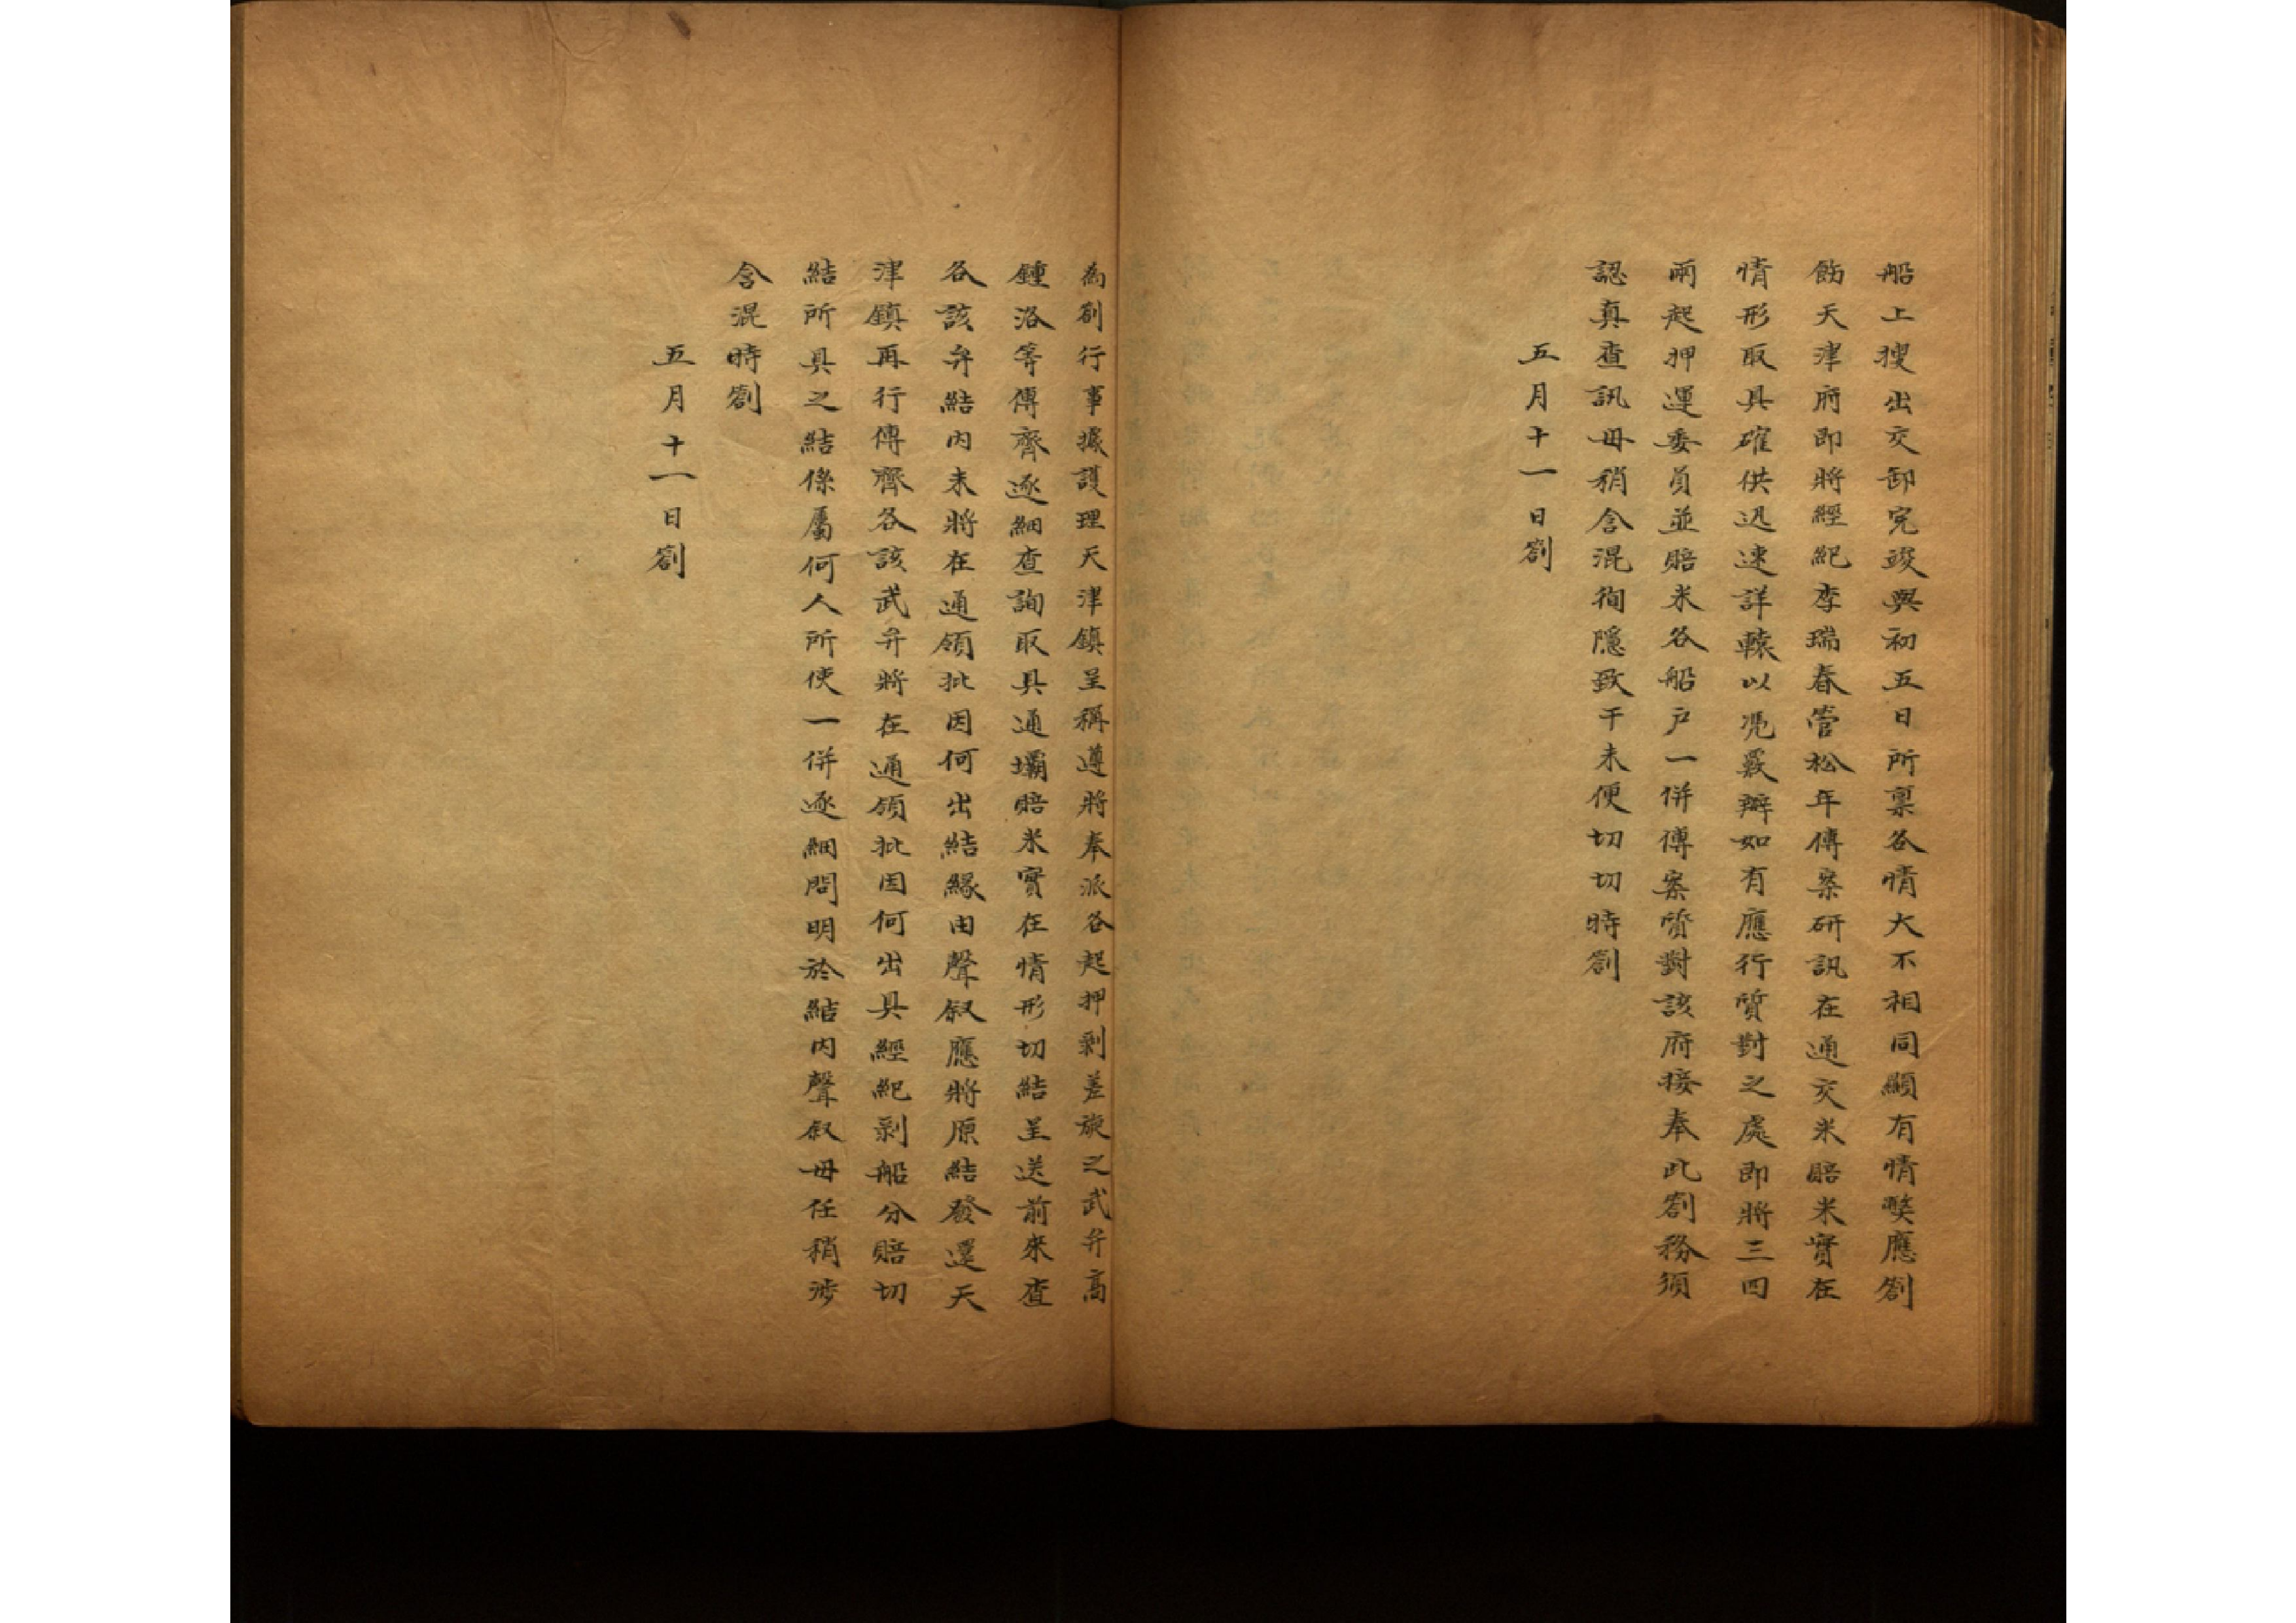 船上搜出交卸完竣與初五日所稟各情大不相同顯有情弊應劄
飭天津府即將經紀李瑞春管松年傳案研訊在通交米賠米實在
情形取具確供迅速詳轅以凴覈辦如有應行質對之處即將三四
兩起押運委員並賠米各船户一併傳案質對該府接奉此劄務須
認真查訊毋稍含混徇隱致干未便切切時劄
五月十一日劄
為劄行事據護理天津鎮呈稱遵將奉派各起押剝差旋之武弁高
鍾洛等傳齊逐細查詢取具通壩賠米實在情形切結呈送前來查
各該弁結内未將在通領批因何出結緣由聲叙應將原結發還天
津鎮再行傳齊各該武弁將在通領批因何出具經紀剝船分賠切
結所具之結係屬何人所使一併逐細問明於結内聲叙毋任稍涉
含混時劄
五月十一日劄